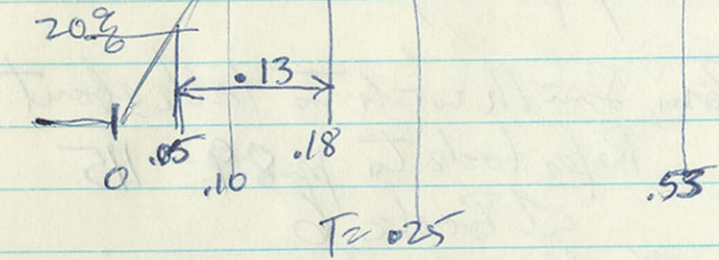 20%
.13
0 .05 .10 .18 .53
T = .25